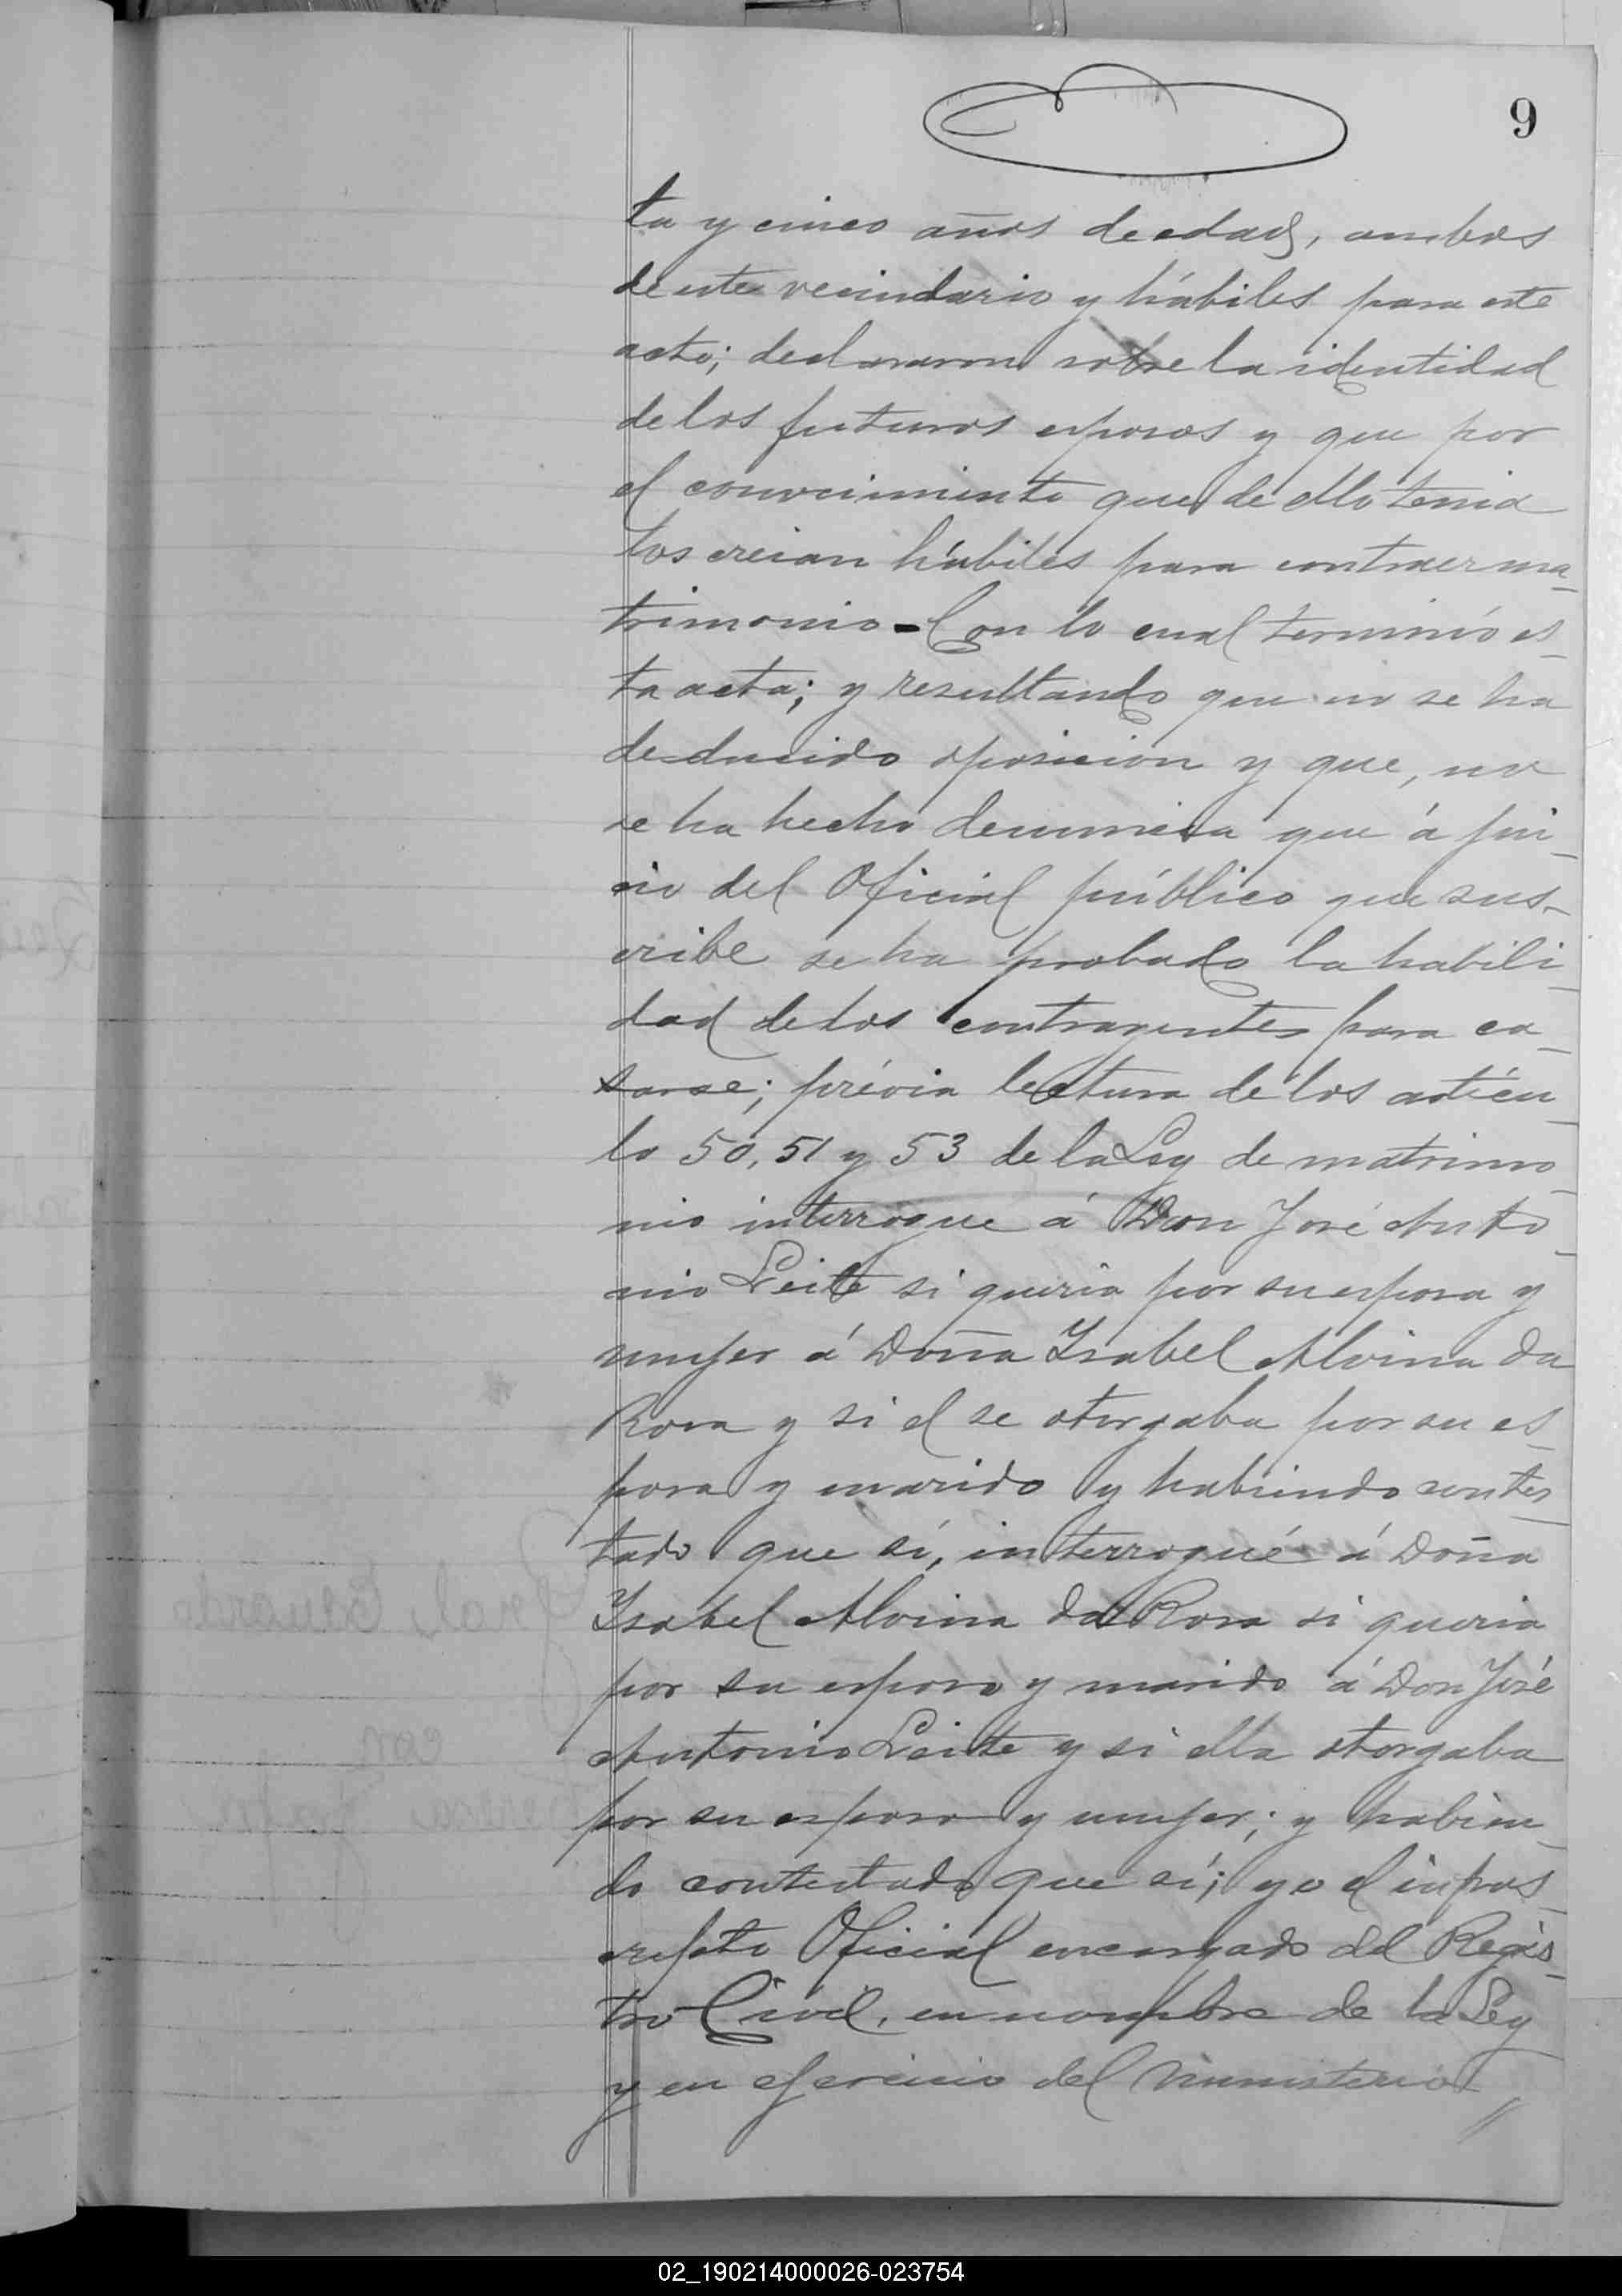 9
ta y cinco años de edad, ambos
de este vecindario y hábiles para este
acto; declararon sobre la identidad
de los futuros esposos y que por
el conocimiento que de ello tenia
los creian hábiles para contraer ma-
trimonio - Con lo cual terminó es-
ta acta; y resultando que no se ha
deducido oposicion y que, no
se ha hecho denuncia que á jui-
cio del Oficial público que sus-
cribe se ha probado la habili-
dad de los contrayentes para ca-
sarse; prévia lectura de los artícu-
lo 50, 51 y 53 de la Ley de matrimo-
nio interrogue á Don José Anto-
nio Leite si queria por su esposa y
mujer á Doña Isabel Alvina da
Rosa y si el se otorgaba por su es-
poso y marido y habiendo contes-
tado que sí, interrogué á Doña
Isabel Alvina da Rosa si queria
por su esposo y marido á Don José
Antonio Leite y si ella otorgaba
por su esposa y mujer; y habien-
do contestado que sí; yo el infras-
cripto Oficial encargado del Regis-
tro Civil, en nombre de la Ley
y en ejercicio del ministerio
Eduardo
con
02_190214000026-023754